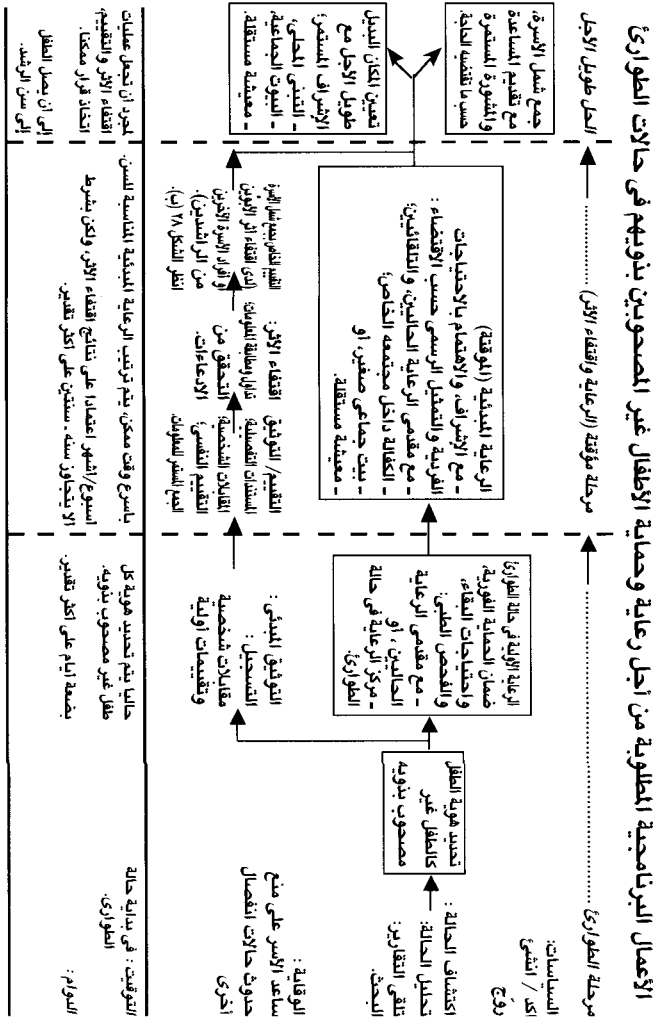 الأعمال البرنامجية المطلوبة من أجل رعاية وحماية الأطفال غير المصحوبين بذويهم فى حالات الطوارئ
مرحلة الطوارئ
مرحلة مؤقتة (الرعاية واقتفاء الأثر)
الحل طويل الأجل
السياسات:
أكد / انشئ
روّج
اكتشاف الحالة :
تحليل الحالة:
تلقى التقارير:
البحث.
الوقاية :
ساعد الأسر على منع
حدوث حالات انفصال
أخرى
تحديد هوية الطفل
كالطفل غير
مصحوب بذويه
الرعاية الأولية فى حالة الطوارئ
ضمان الحماية الفورية،
واحتياجات البقاء،
والفحص الطبى:
ـ مع مقدمى الرعاية
الحاليين ، أو
ـ مركز الرعاية فى حالة
الطوارئ.
التوثيق المبدئى :
التسجيل :
مقابلات شخصية
وتقييمات أولية
الرعاية المبدئية (الموقتة)
ـ مع الإشراف، والاهتمام بالاحتياجات
الفردية والتمثيل الرسمى حسب الاقتضاء :
ـ مع مقدمى الرعاية الحاليين، والتلقائيين؛
ـ الكفالة داخل مجتمعه الخاص؛
ـ بيت جماعى صغير، أو
ـ معيشة مستقلة.
التقييم/ التوثيق
المستندات التفصيلية؛
المقابلات الشخصية؛
التقييم النفسى؛
الجمع المستمر للمعلومات.
اقتفاء الأثر:
تداول ومطابقة المعلومات؛
التحقق من
الادعاءات.
التقييم الخاص بجمع شمل الأسرة
(لدى اقتفاء أثر الأبوين
أو أفراد الأسرة الآخرين
من الراشدين).
انظر الشكل ٢٨ (ب).
جمع شمل الأسرة،
مع تقديم المساعدة
والمشورة المستمرة
حسب ما تقتضيه الحاجة.
تعيين المكان البديل
طويل الأجل مع
الإشراف المستمر؛
ـ التبنى المحلى،
ـ البيوت الجماعية،
ـ معيشة مستقلة.
التوقيت : فى بداية حالة
الطوارئ.
الدوام :
حاليا يتم تحديد هوية كل
طفل غير مصحوب بذويه.
بضعة أيام على أكثر تقدير.
بأسرع وقت ممكن، يتم ترتيب الرعاية المبدئية المناسبة للسن.
أسبوع/أشهر اعتمادا على نتائج اقتفاء الأثر، ولكن بشرط
ألا يتجاوز سنه ـ سنتين على أكثر تقدير.
لمجرد أن تجعل عمليات
اقتفاء الأثر والتقييم،
اتخاذ قرار ممكنا.
إلى أن يصل الطفل
إلى سن الرشد.